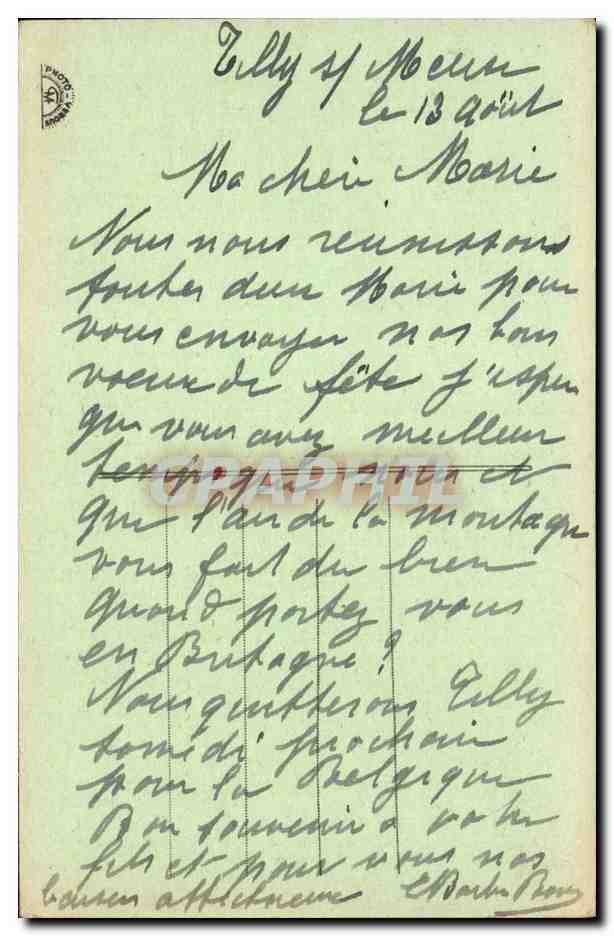 Tilly s/ Meuse
le 13 août
Ma chère Marie
Nous nous réunissons
toutes deux Marie pour
vous envoyer nos bons
voeux de fête j'espère
que vous avez meilleur
temps que nous et
que l'air de la montagne
vous fait du bien
Quand partez vous
en Bretagne ?
Nous quitterons Tilly
samedi prochain
pour la Belgique
Bon souvenir à votre
fils et pour vous nos
baisers affectueux
PHOTO
CRAPHIL